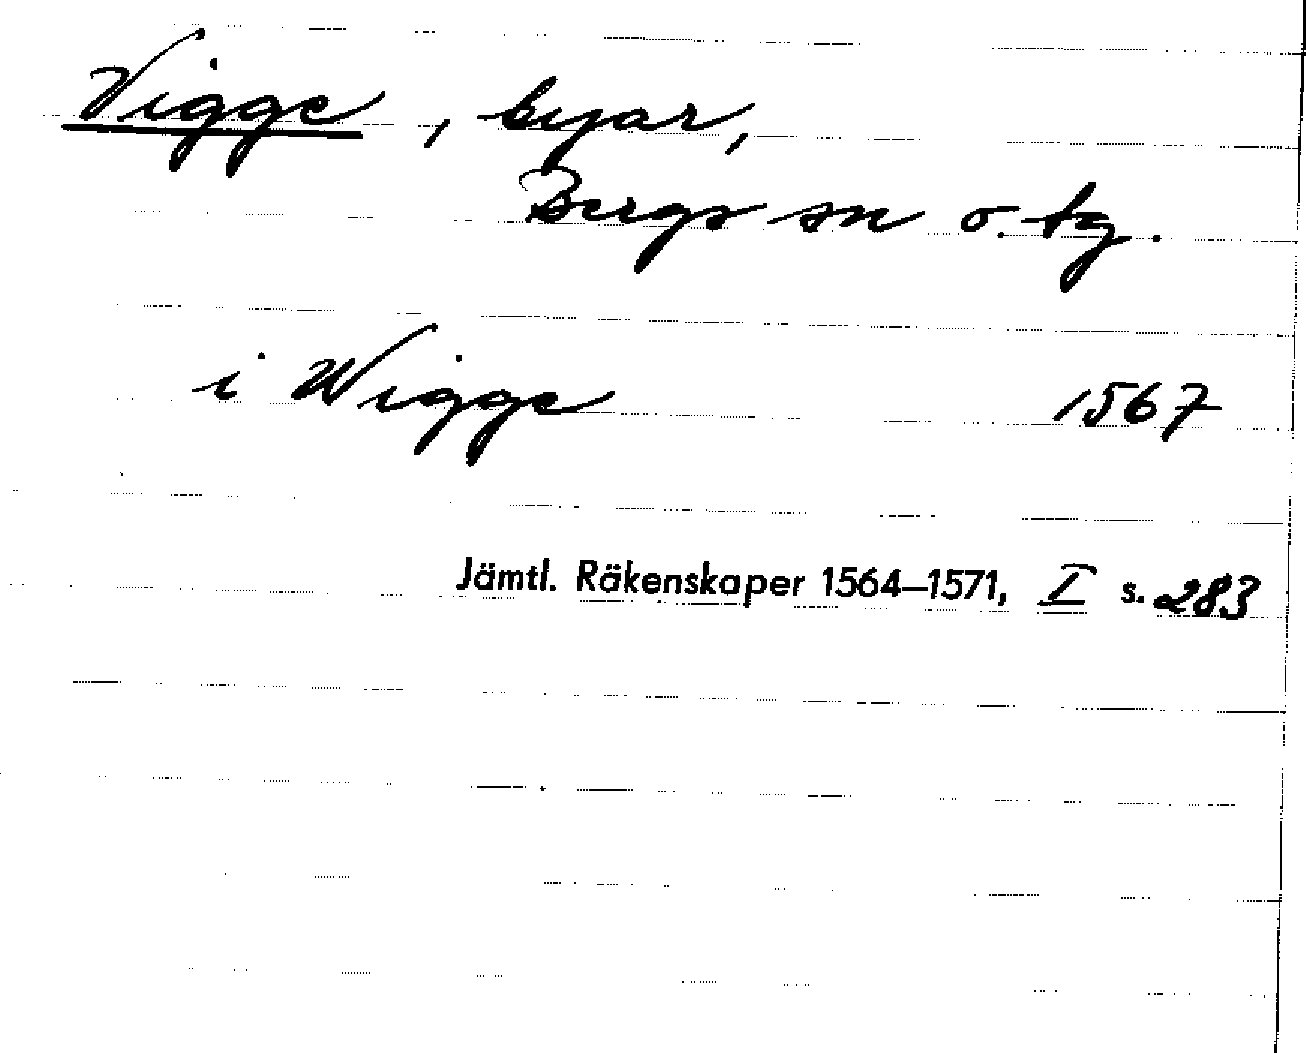 Vigge, byar,
Bergs sn o. tg.
i Wigge 1567
Jämtl. Räkenskaper 1564–1571, I s. 283